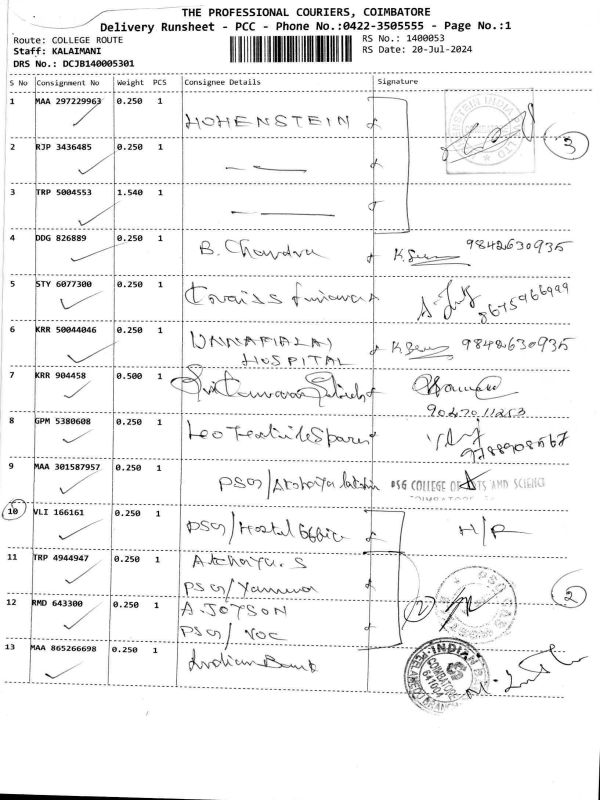 THE PROFESSIONAL COURIERS, COIMBATORE
Delivery Runsheet - PCC - Phone No.:0422-3505555 - Page No.:1
Route: COLLEGE ROUTE
RS No.: 1400053
Staff: KALAIMANI
RS Date: 20-Jul-2024
DRS No.: DCJB140005301
S No Consignment No Weight PCS Consignee Details Signature
1 MAA 297229963 0.250 1 HOHENSTEIN
3
2 RJP 3436485 0.250 1
3 TRP 5004553 1.540 1
4 DDG 826889 0.250 1 B. Chandra 9842630935
5 STY 6077300 0.250 1
8675966999
6 KRR 50044046 0.250 1
HOSPITAL 9842630935
7 KRR 904458 0.500 1
9047011253
8 GPM 5380608 0.250 1 Leo Textile Spares
9788908567
9 MAA 301587957 0.250 1 PSG/Akshaya PSG COLLEGE OF ARTS AND SCIENCE
COIMBATORE
10 VLI 166161 0.250 1 PSG/Hostel Office H/R
11 TRP 4944947 0.250 1 Akshaya.S
PSG/Yamuna
12 RMD 643300 0.250 1 A.JOYSON
PSG/VOC
2
13 MAA 865266698 0.250 1 Indian Bank
INDIAN
COIMBATORE
641004